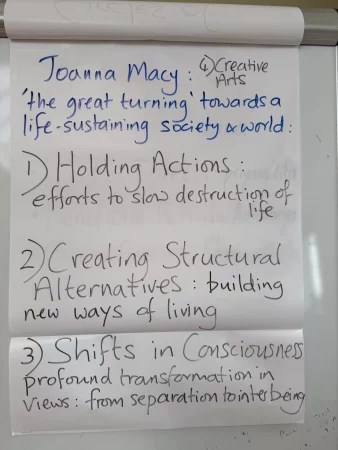 Joanna Macy : ④ Creative
Arts
'the great turning' towards a
life-sustaining society & world :
1) Holding Actions :
efforts to slow destruction of
life
2) Creating Structural
Alternatives : building
new ways of living
3) Shifts in Consciousness
profound transformation in
views : from separation to interbeing